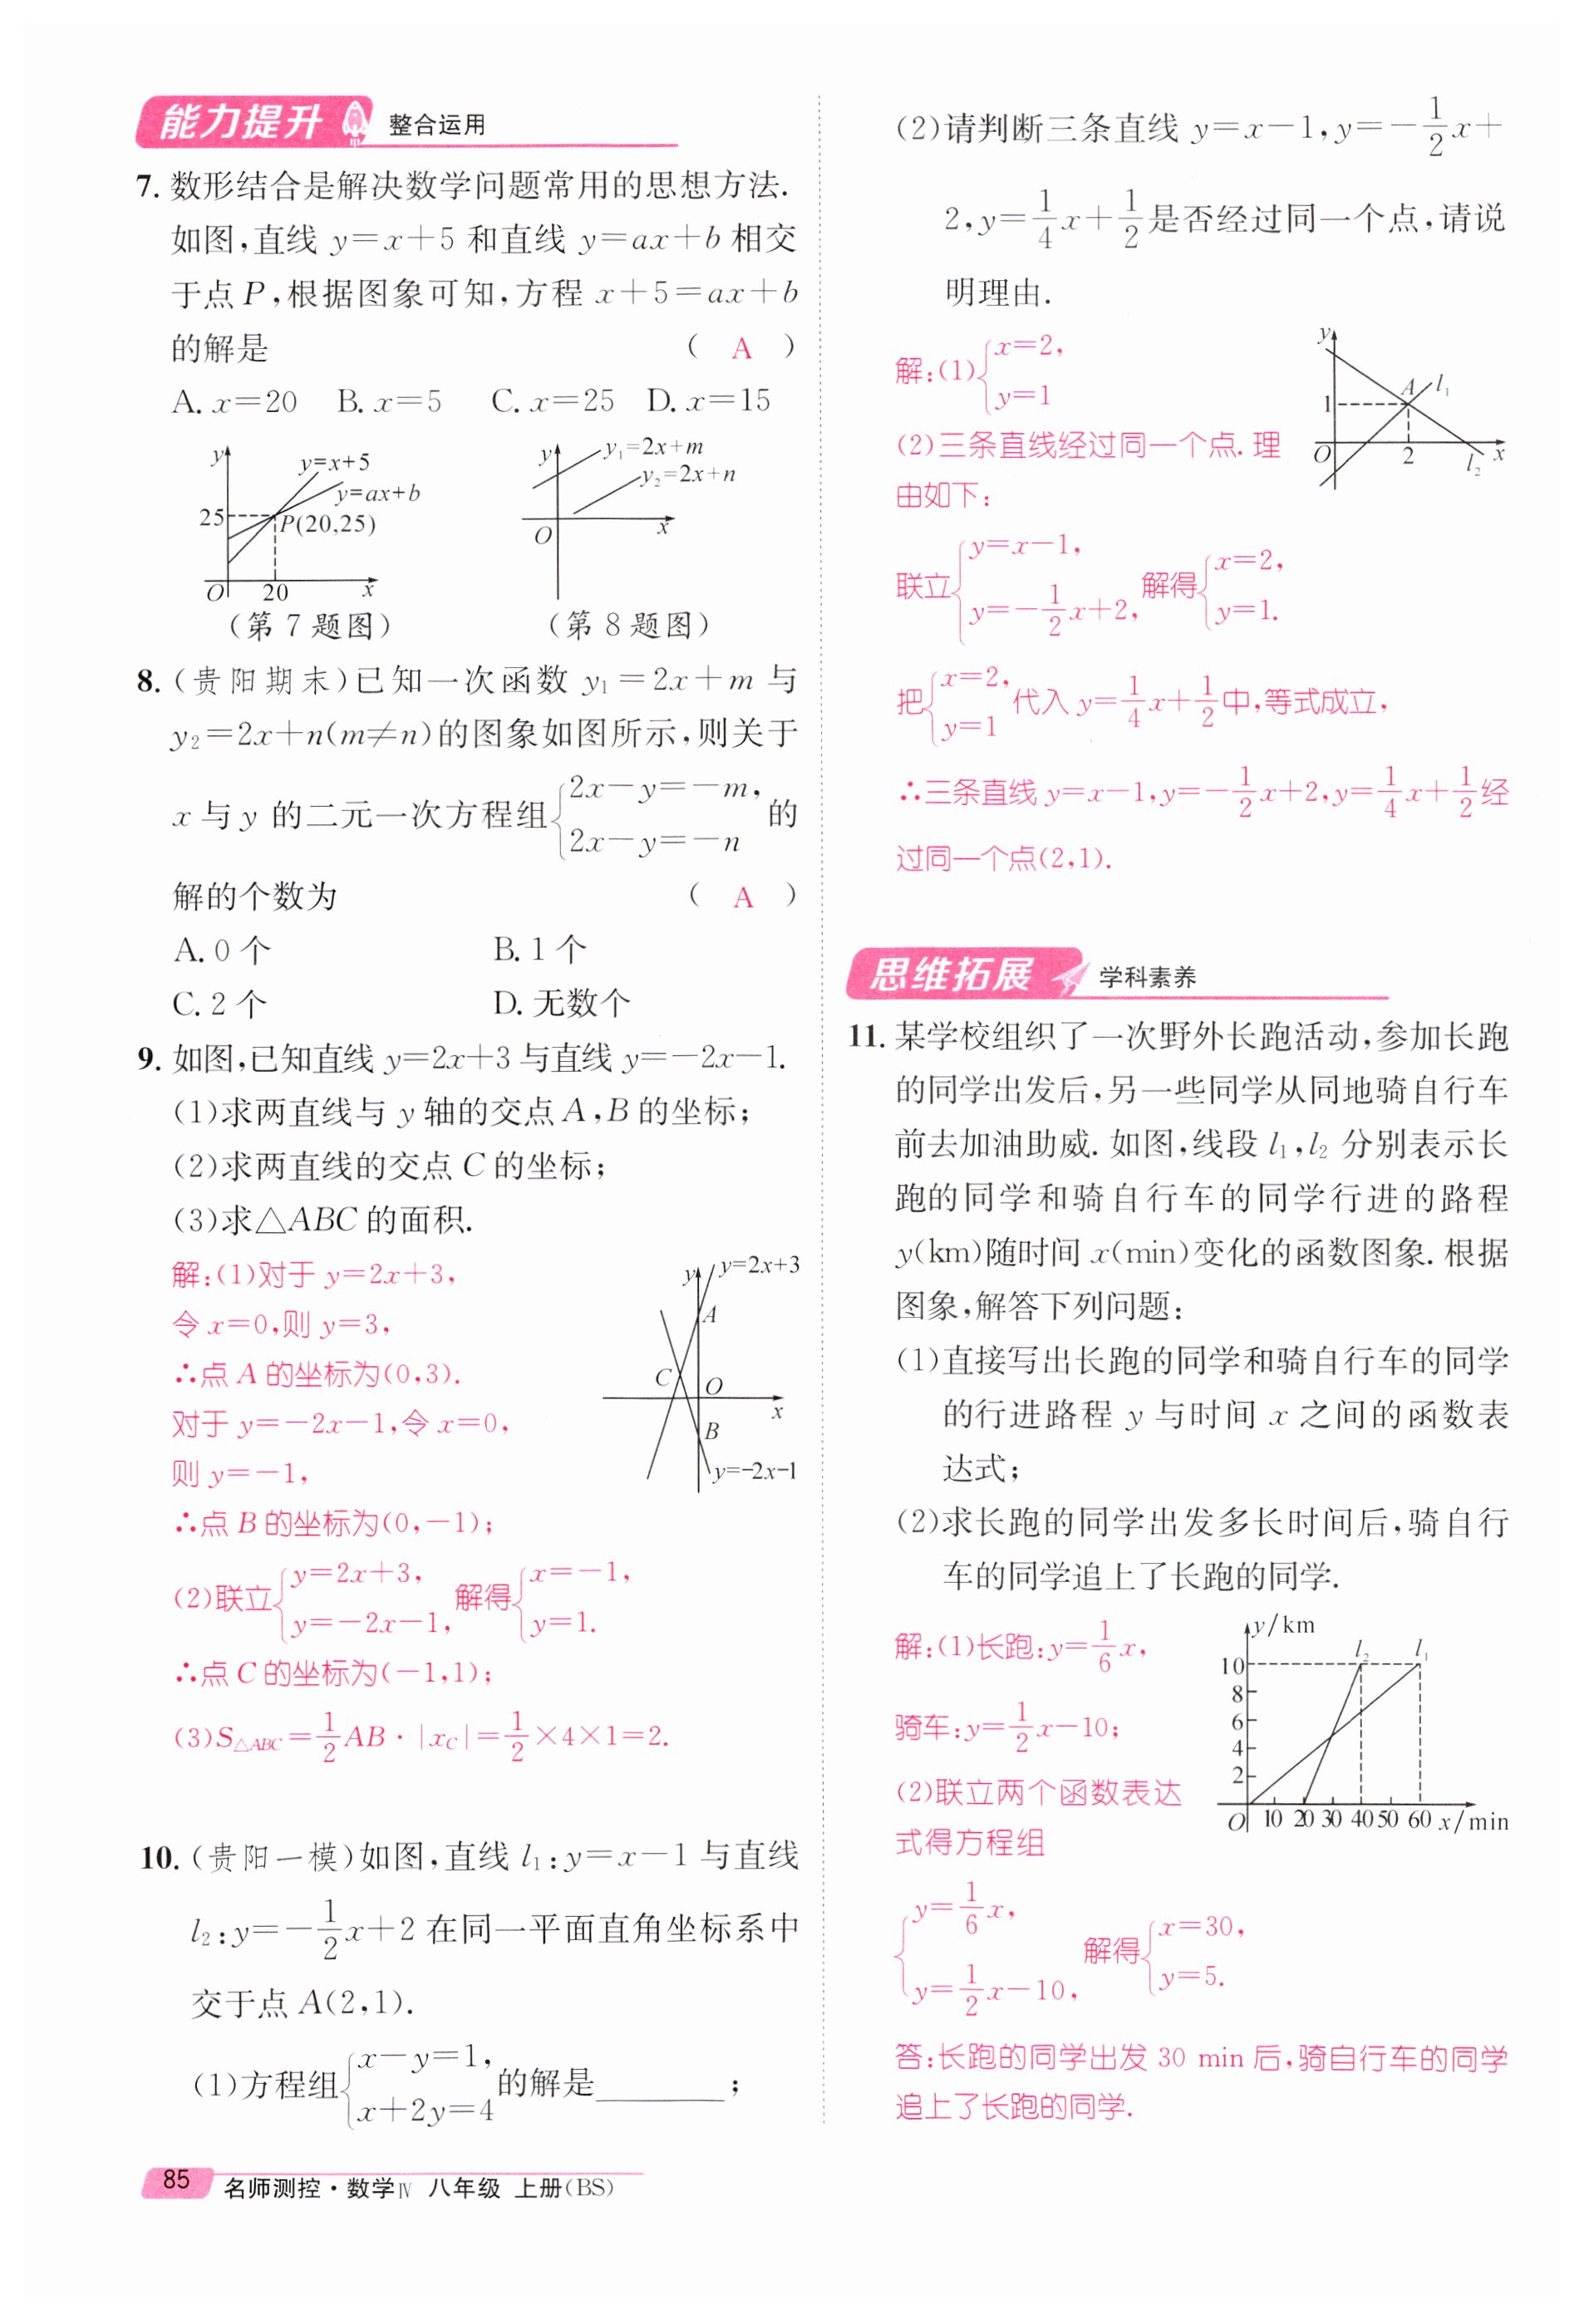 能力提升 整合运用
7. 数形结合是解决数学问题常用的思想方法.
如图,直线 y=x+5 和直线 y=ax+b 相交
于点 P,根据图象可知,方程 x+5=ax+b
的解是 ( A )
A. x=20 B. x=5 C. x=25 D. x=15
y y=x+5
y=ax+b
25 P(20,25)
O 20 x
(第 7 题图)
y y₁=2x+m
y₂=2x+n
O x
(第 8 题图)
8. (贵阳期末)已知一次函数 y₁=2x+m 与
y₂=2x+n(m≠n)的图象如图所示,则关于
x 与 y 的二元一次方程组{2x-y=-m, 2x-y=-n 的
解的个数为 ( A )
A. 0 个 B. 1 个
C. 2 个 D. 无数个
9. 如图,已知直线 y=2x+3 与直线 y=-2x-1.
(1)求两直线与 y 轴的交点 A,B 的坐标;
(2)求两直线的交点 C 的坐标;
(3)求△ABC 的面积.
解:(1)对于 y=2x+3,
令 x=0,则 y=3,
∴点 A 的坐标为(0,3).
对于 y=-2x-1,令 x=0,
则 y=-1,
∴点 B 的坐标为(0,-1);
y y=2x+3
A
C O
x
B
y=-2x-1
(2)联立{y=2x+3, y=-2x-1, 解得{x=-1, y=1.
∴点 C 的坐标为(-1,1);
(3)S△ABC=1/2 AB·|xC|=1/2×4×1=2.
10. (贵阳一模)如图,直线 l₁:y=x-1 与直线
l₂:y=-1/2 x+2 在同一平面直角坐标系中
交于点 A(2,1).
(1)方程组{x-y=1, x+2y=4 的解是________;
(2)请判断三条直线 y=x-1,y=-1/2 x+
2,y=1/4 x+1/2 是否经过同一个点,请说
明理由.
解:(1){x=2, y=1
(2)三条直线经过同一个点. 理
由如下:
y
A l₁
1
O 2 l₂ x
联立{y=x-1, y=-1/2 x+2, 解得{x=2, y=1.
把{x=2, y=1 代入 y=1/4 x+1/2 中,等式成立,
∴三条直线 y=x-1,y=-1/2 x+2,y=1/4 x+1/2 经
过同一个点(2,1).
思维拓展 学科素养
11. 某学校组织了一次野外长跑活动,参加长跑
的同学出发后,另一些同学从同地骑自行车
前去加油助威. 如图,线段 l₁,l₂ 分别表示长
跑的同学和骑自行车的同学行进的路程
y(km)随时间 x(min)变化的函数图象. 根据
图象,解答下列问题:
(1)直接写出长跑的同学和骑自行车的同学
的行进路程 y 与时间 x 之间的函数表
达式;
(2)求长跑的同学出发多长时间后,骑自行
车的同学追上了长跑的同学.
解:(1)长跑:y=1/6 x,
骑车:y=1/2 x-10;
(2)联立两个函数表达
式得方程组
y/km
l₂ l₁
10
8
6
4
2
O 10 20 30 40 50 60 x/min
{y=1/6 x, y=1/2 x-10, 解得{x=30, y=5.
答:长跑的同学出发 30 min 后,骑自行车的同学
追上了长跑的同学.
85 名师测控·数学Ⅳ 八年级 上册(BS)